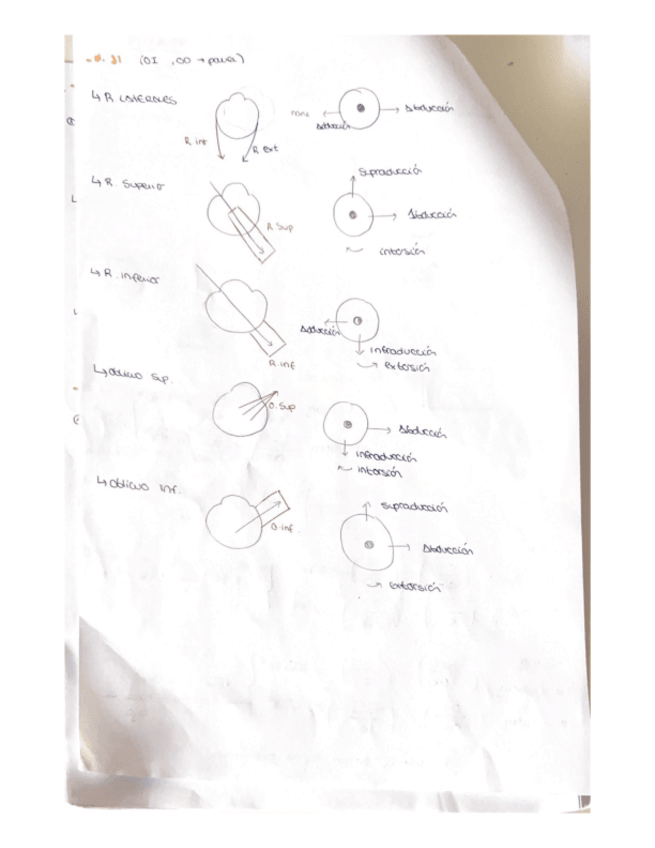 (OI, OD → para)
↳ R laterales
R. int
R. ext
nariz
Adducción
Abducción
↳ R. Superior
R. Sup
Supraducción
Abducción
intorsión
↳ R. inferior
R. inf
Adducción
infraducción
extorsión
↳ oblicuo sup.
O. Sup
Abducción
infraducción
intorsión
↳ oblicuo inf.
O. inf.
supraducción
Abducción
extorsión